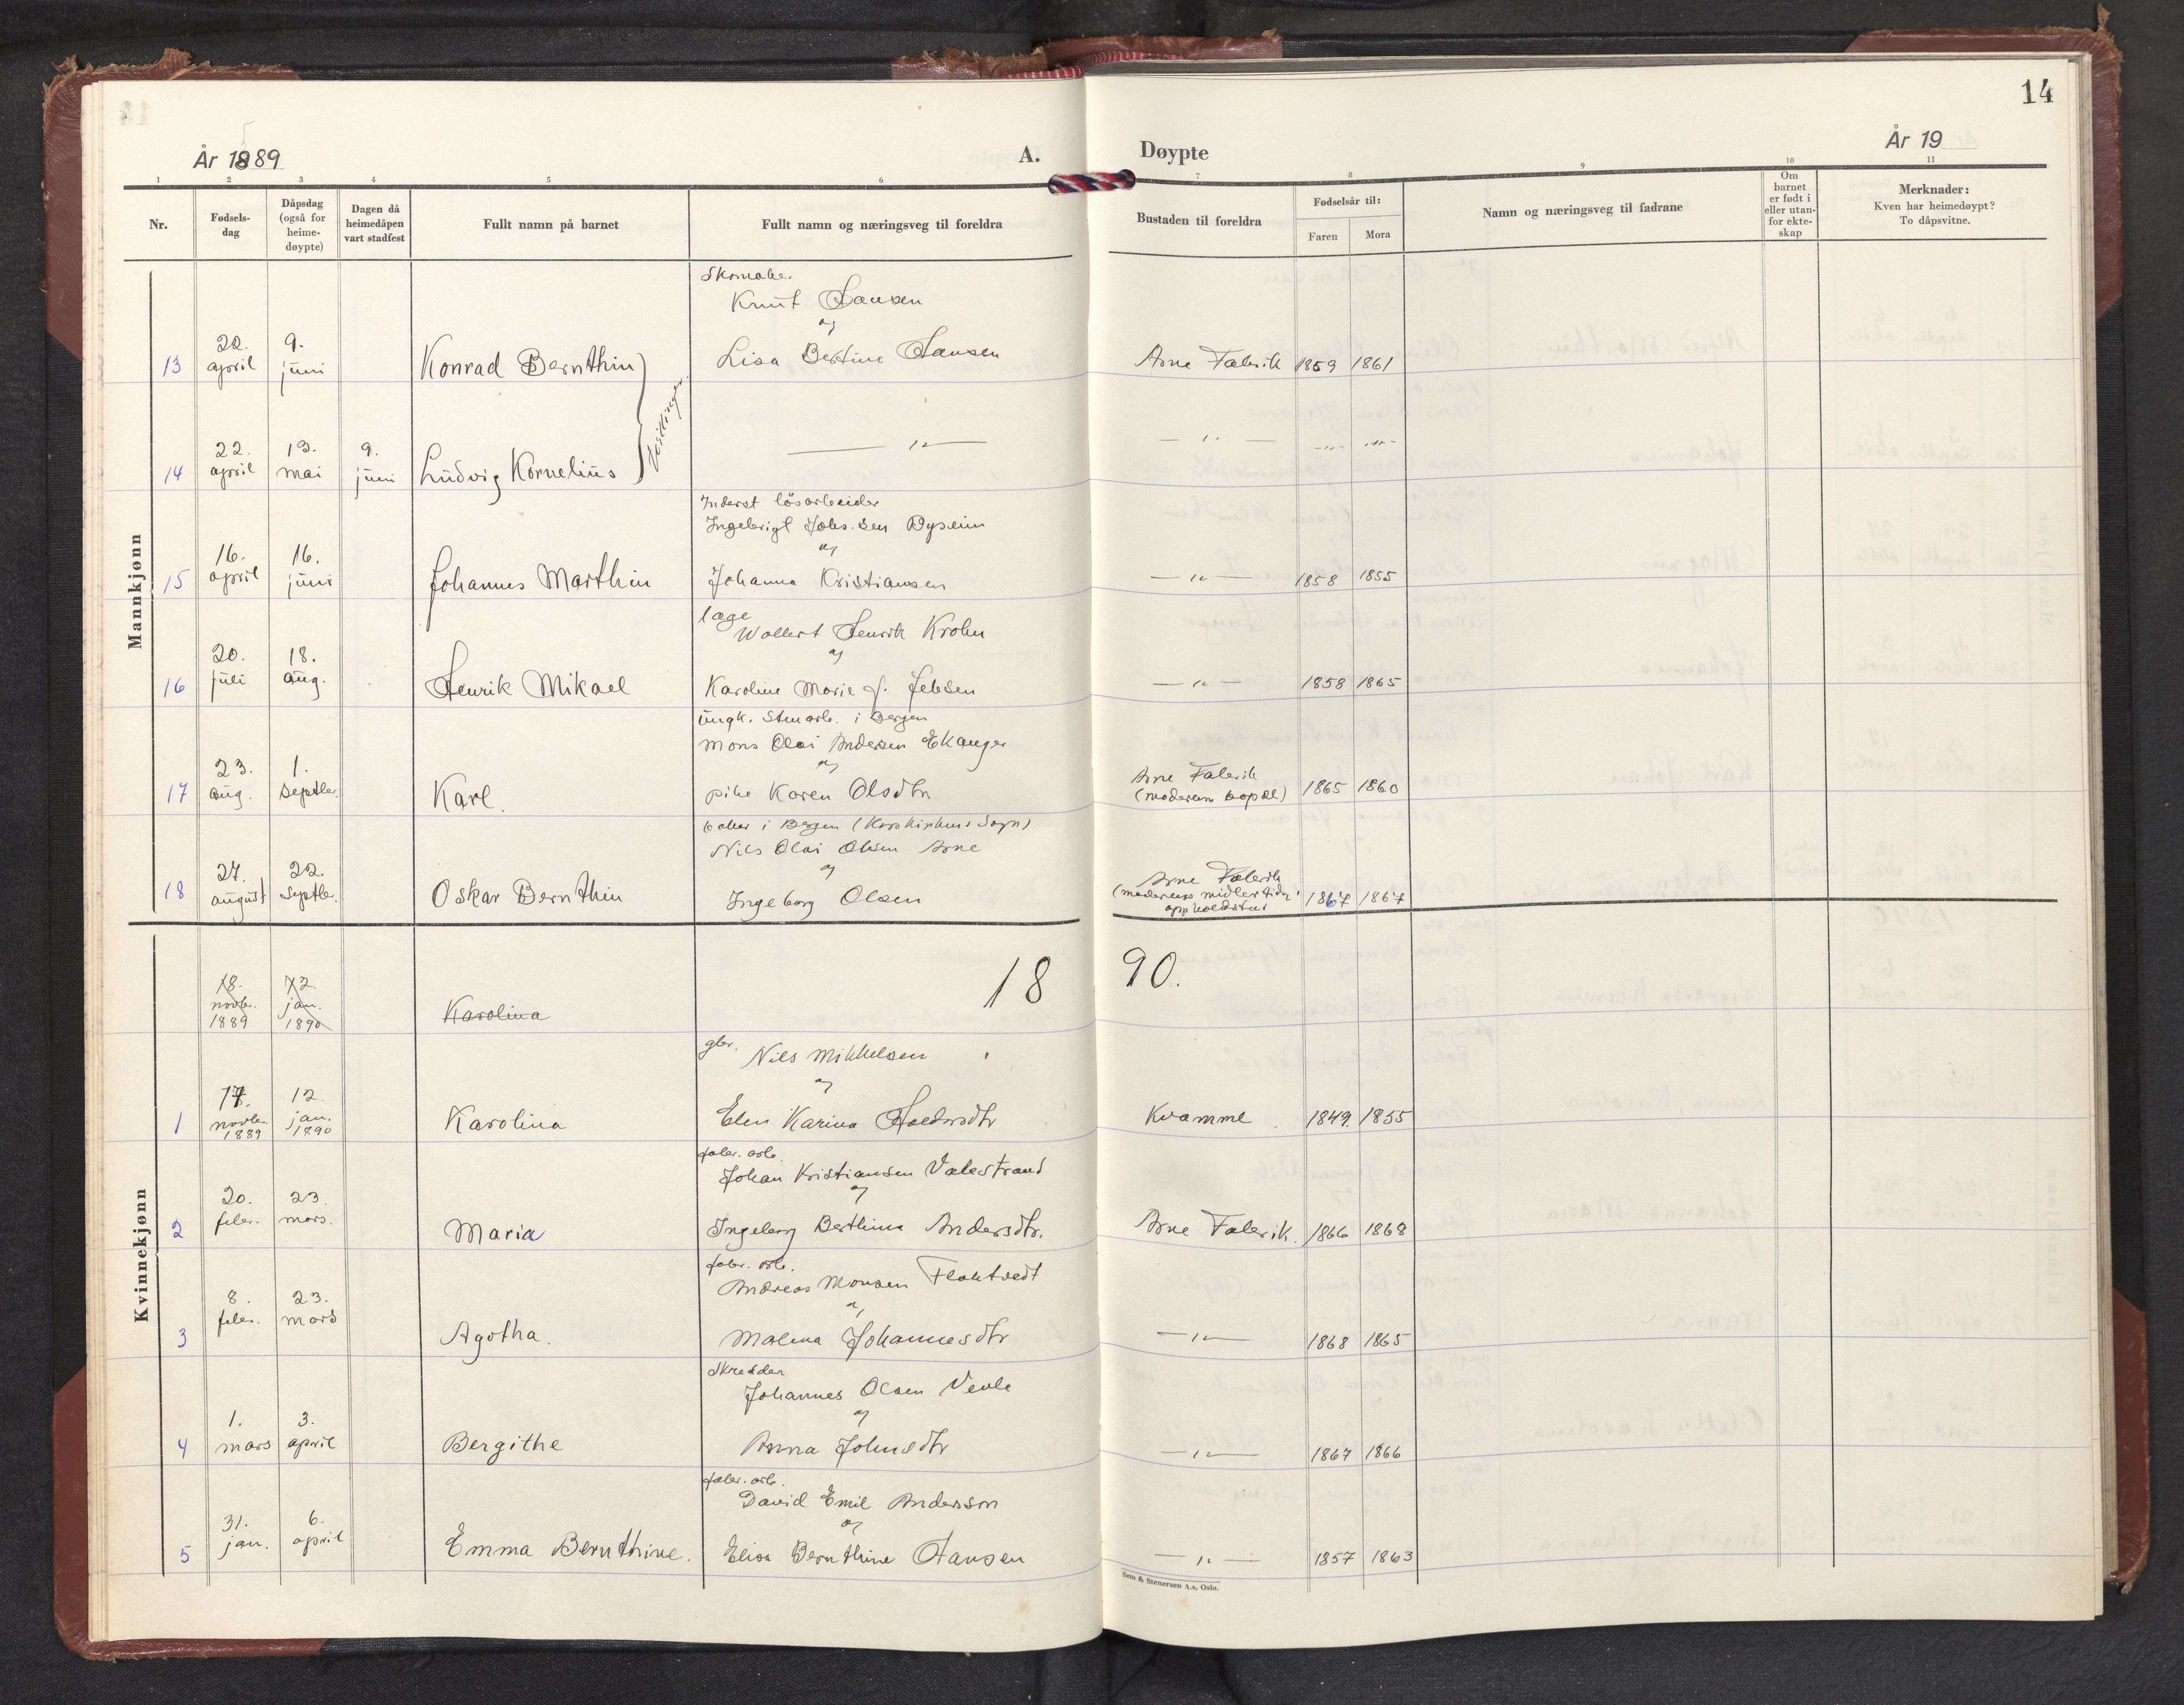 14
År 1889
A.
Døypte
År 19
1 2 3 4 5 6 7 8 9 10 11
Nr.
Fødsels-
dag
Dåpsdag
(også for
heime-
døypte)
Dagen då
heimedåpen
vart stadfest
Fullt namn på barnet
Fullt namn og næringsveg til foreldra
Bustaden til foreldra
Fødselsår til:
Faren Mora
Namn og næringsveg til fadrane
Om
barnet
er født i
eller utan-
for ekte-
skap
Merknader:
Kven har heimedøypt?
To dåpsvitne.
Mannkjønn
Skomaker
Knut Hansen
og
13 22. april 9. juni Konrad Bernthin Lisa Bertine Hansen Arne Fabrik 1859 1861
Tvillinger
14 22. april 13. mai 9. juni Ludvig Kornelius —"— —"— —"— —"—
Inderst løsarbeider
Ingebrigt Johs.sen
og
15 16. april 16. juni Johannes Marthin Johanna Kristiansen —"— 1858 1855
læge
Wollert Henrik Krohn
og
16 20. juli 18. aug. Henrik Mikael Karoline Marie f. Jebsen —"— 1858 1865
ungk. Stenarb. i Bergen
Mons Olai Andersen Ekanger
og
17 23. aug. 1. septbr. Karl. pike Karen Olsdtr Arne Fabrik (moderens bopæl) 1865 1860
baker i Bergen (Korskirkens Sogn)
Nils Olai Olsen Arne
og
18 27. august 22. septbr. Oskar Bernthin Ingeborg Olsen Arne Fabrik (moderens midlertid. oppholdster 1867 1867
1890.
Kvinnekjønn
18. novbr. 1889 12. jan. 1890 Karolina
gbr. Nils Mikkelsen
og
1 17. novbr. 1889 12. jan. 1890 Karolina Elen Karina Kvamme 1849 1855
fabr. arb.
Johan Kristiansen Valestrand
og
2 20. febr. 23. mars. Maria Ingeborg Berthina Andersdtr. Arne Fabrik. 1866 1868
fabr. arb.
Andreas Monsen Flaktvedt
og
3 8. febr. 23. mars Agotha. Malena Johannesdtr —"— 1868 1865
Skredder
Johannes Olsen Vevle
og
4 1. mars 3. april Bergithe Anna Johnsdtr —"— 1867 1866
fabr. arb.
David Emil Andersson
og
5 31. jan. 6. april Emma Bernthine. Elisa Bernthine Hansen —"— 1857 1863
Sem & Stenersen A.s, Oslo.